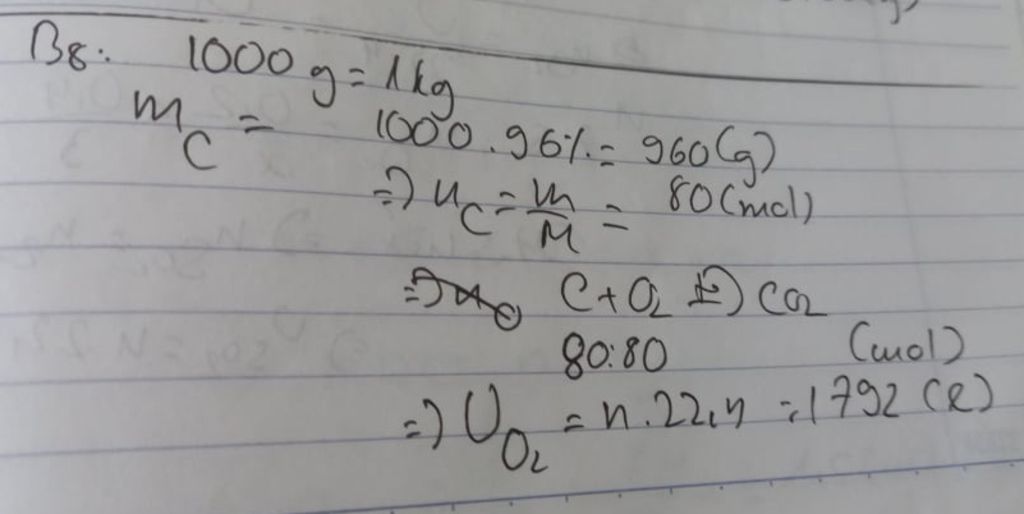 B8: 1000 g = 1kg
m_C = 1000 . 96% = 960 (g)
=> n_C = m/M = 80 (mol)
=> C + O2 t°-> CO2
80 : 80 (mol)
=> V_O2 = n . 22,4 = 1792 (l)